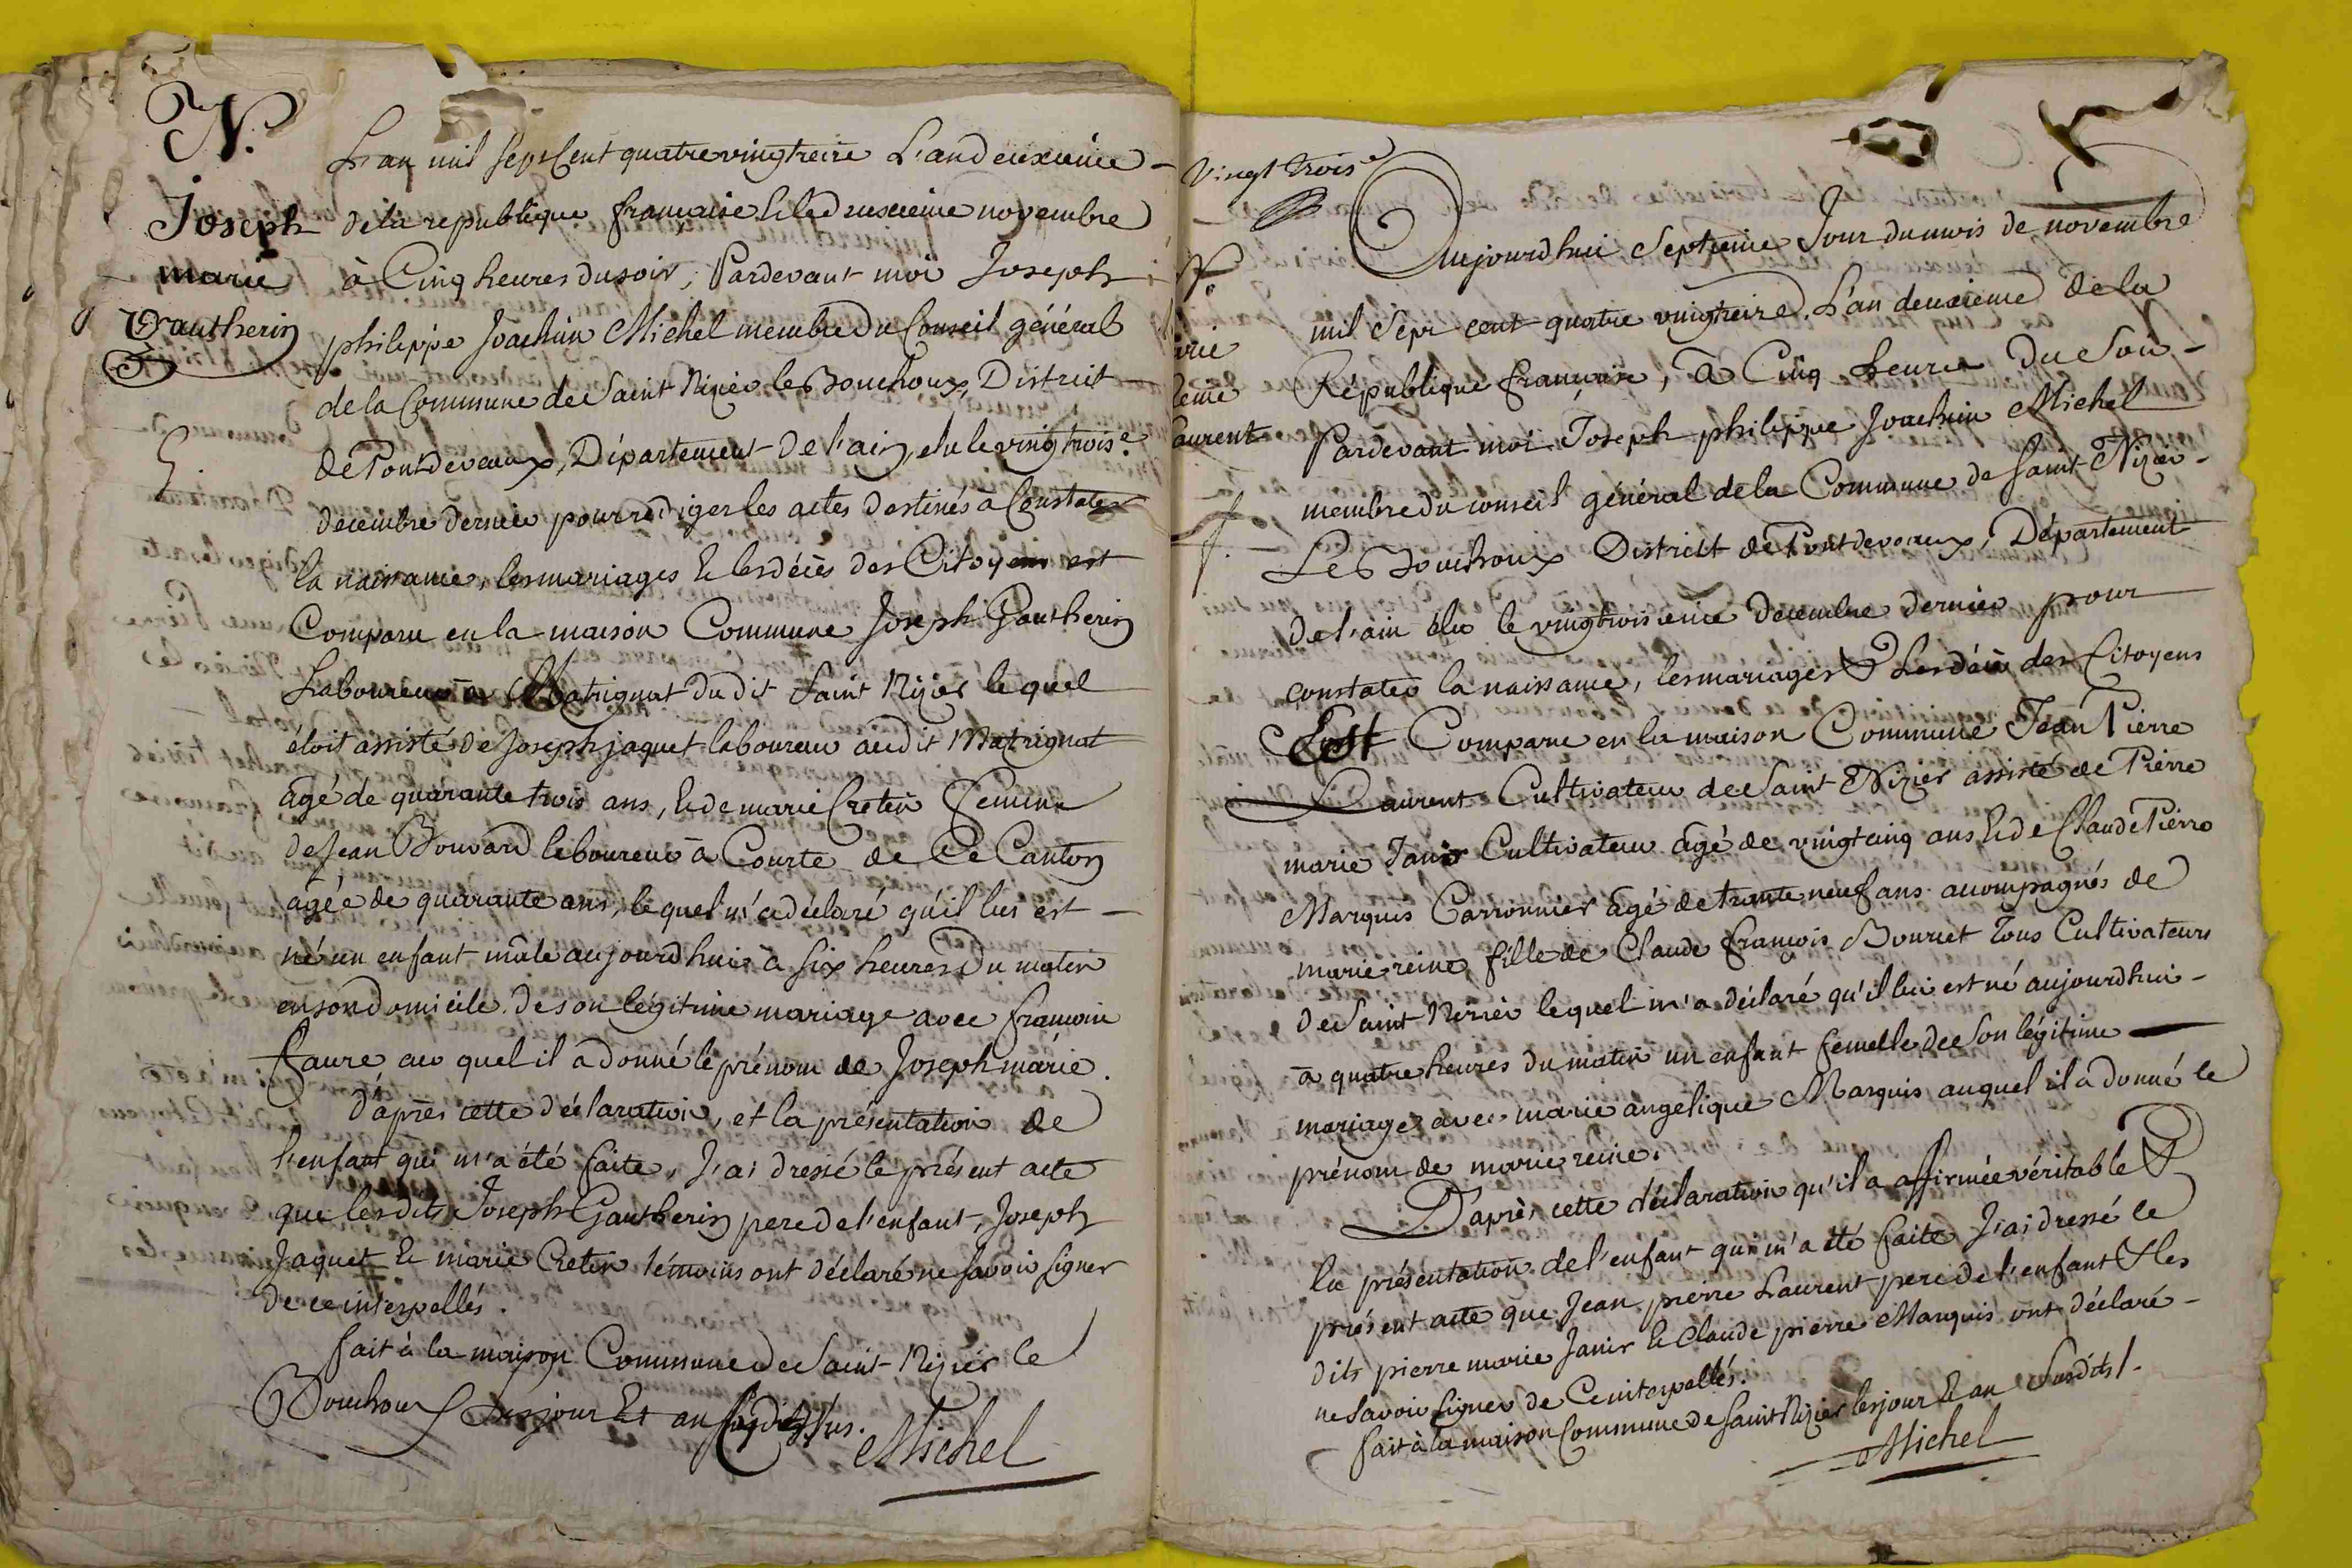 N.
Joseph
marie
Gautherin
L'an mil sept Cent quatrevingtreize L'an deuxieme -
de la republique françoise & le deuxieme novembre
à Cinq heures du soir, Pardevant moi Joseph
philippe Joachim Michel membre du Conseil général
de la Commune de Saint Nizier le Bouchoux, District
de Pontdevaux, Département de l'ain, élu le vingtrois.e
decembre dernier pour rediger les actes destinés a Constater
la naissance, les mariages & les décès des Citoyens est
Comparu en la maison Commune Joseph Gautherin
Laboureur a Matrignat du dit Saint Nizier lequel
étoit assisté de Joseph jaquet laboureur audit Matrignat
âgé de quarante trois ans, & de marie Cretin femme
de Jean Bouvard laboureur à Courte de Ce Canton
âgée de quarante ans, lequel m'a déclaré qu'il lui est -
né un enfant mâle aujourd'hui à six heures du matin
en son domicile de son légitime mariage avec
faure, au quel il a donné le prénom de Joseph marie.
d'après cette déclaration, et la présentation de
l'enfant qui m'a été faite, J'ai dressé le présent acte
que lesdits Joseph Gautherin pere de l'enfant, Joseph
Jaquet & marie Cretin témoins ont déclaré ne savoir signer
de ce interpellés.
fait à la maison Commune de Saint Nizier le
Bouchoux les jour Et an susdits.
Michel
Vingt trois.e
N.
arie
reine
aurent
f.
Aujourdhui Septieme Jour du mois de novembre
mil Sept cent quatre vingtreize. L'an deuxieme de la
République françoise, à Cinq heures du Soir -
Pardevant moi Joseph philippe Joachim Michel
membre du conseil général de la Commune de Saint Nizier -
Le Bouchoux District de Pontdevaux, Département
de l'ain élu le vingtroisieme decembre dernier pour
constater la naissance, les mariages & les décès des Citoyens
Est Comparu en la maison Commune Jean Pierre
Laurent Cultivateur de Saint Nizier assisté de Pierre
marie Janir Cultivateur âgé de vingtcinq ans & de Claude Pierre
Marquis Carronnier âgé de trente neuf ans accompagnés de
marie reine fille de Claude françois Bourcet tous Cultivateurs
de Saint Nizier lequel m'a déclaré qu'il lui est né aujourdhui -
à quatre heures du matin un enfant femelle de Son légitime
mariage avec marie angelique Marquis auquel il a donné le
prénom de marie reine.
D'après cette déclaration qu'il a affirmée véritable &
la présentation de l'enfant qui m'a été faite J'ai dressé le
présent acte que Jean pierre Laurent pere de l'enfant & les
dits pierre marie Janir & Claude pierre Marquis ont déclaré -
ne Savoir Signer de Ce interpellés.
fait à la maison Commune de Saint Nizier les jour & an Susdits.
Michel